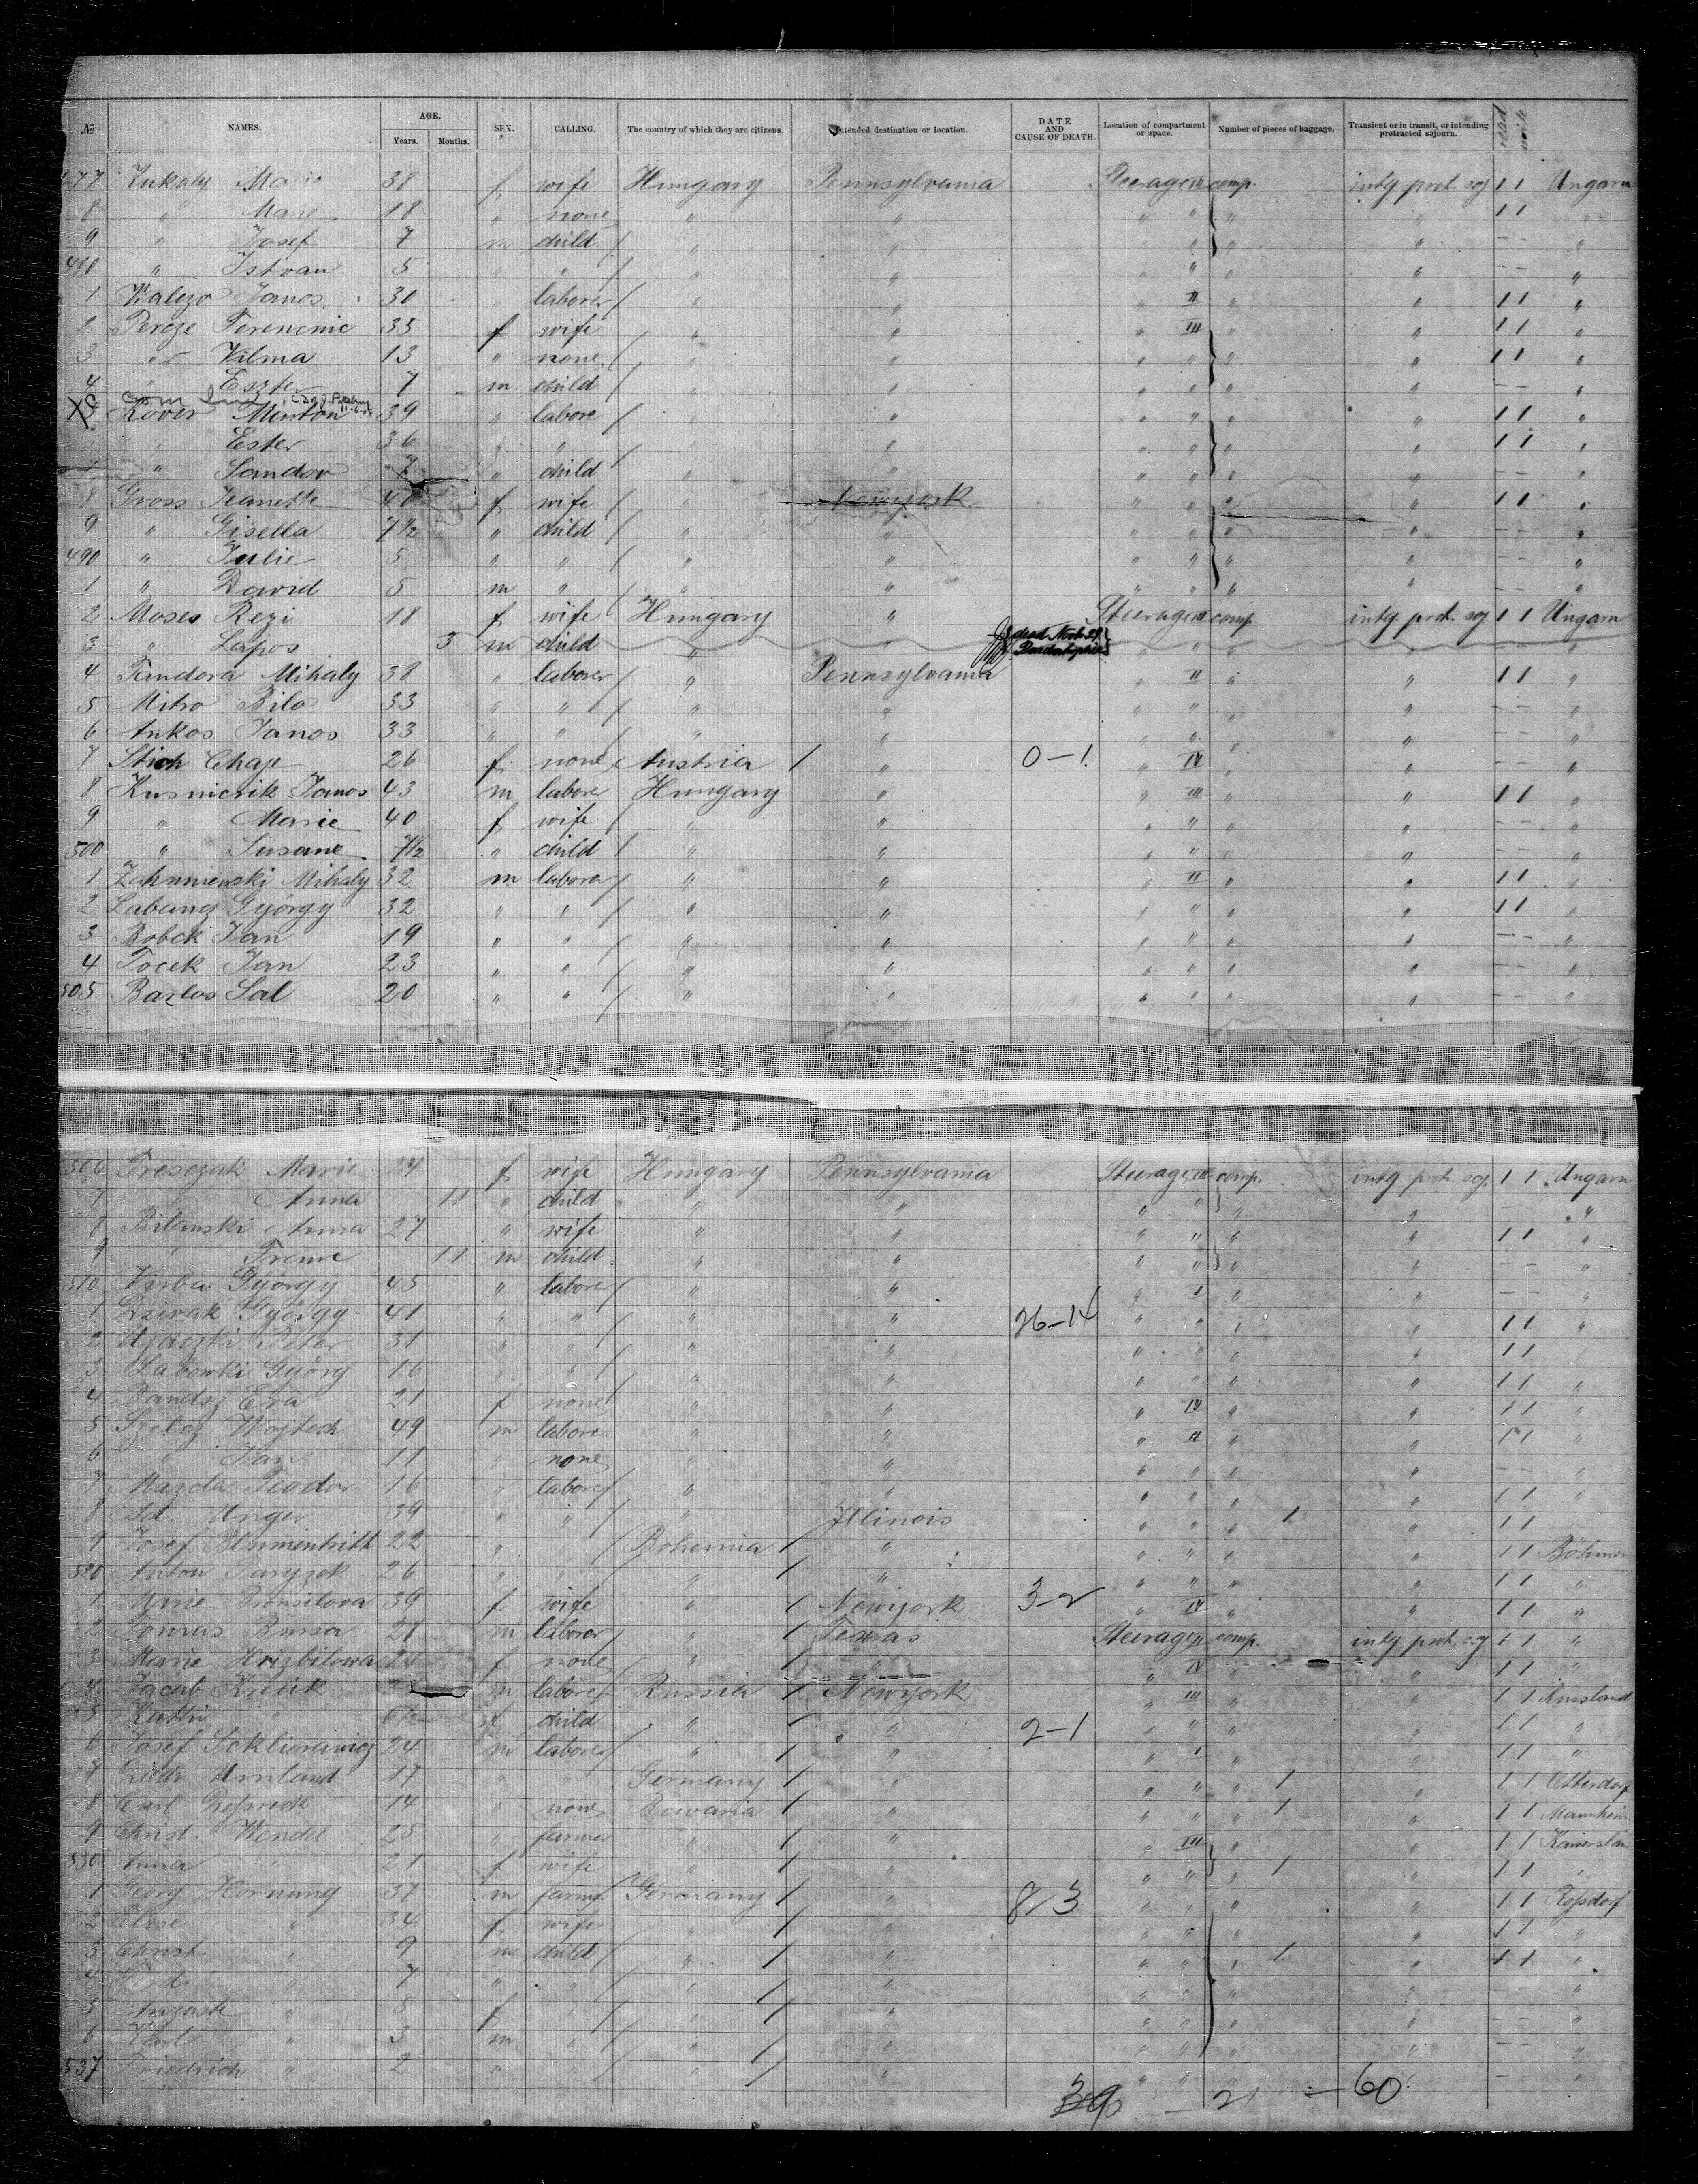 № NAMES. AGE. Years. Months. SEX. CALLING. The country of which they are citizens. Intended destination or location. DATE AND CAUSE OF DEATH. Location of compartment or space. Number of pieces of baggage. Transient or in transit, or intending protracted sojourn. read write
477 Zukaly Marie 38 f wife Hungary Pennsylvania Steerage III comp. intg prot. soj 1 1 Ungarn
8 " Marie 18 " none " " " " " " 1 1 "
9 " Josef 7 m child " " " " " " - - "
480 " Istvan 5 " " " " " " " " - - "
1 Kalczo Janos 30 " laborer " " " II " " 1 1 "
2 Percze Ferencnic 35 f wife " " " III " " 1 1 "
3 " Vilma 13 " none " " " " " " 1 1 "
4 " Eszter 7 m child " " " " " " - - "
Kover Marton 39 " labore " " " " " " 1 1 "
" Ester 36 " " " " " " " " 1 1 "
" Sandor 7 " child " " " " " " - - "
8 Gross Jeanette 40 f wife " Newyork " " " " 1 1 "
9 " Gisella 7½ " child " " " " " " - - "
490 " Julie 5 " " " " " " " " - - "
1 " David 5 m " " " " " " " - - "
2 Moses Rezi 18 f wife Hungary " Steerage III comp intg. prot. soj 1 1 Ungarn
3 " Lapos 3 m child " " dead Nov. 29. " " " " - - "
4 Fandora Mihaly 38 " laborer " Pennsylvania " II " " 1 1 "
5 Mitro Bilo 33 " " " " " " " " - - "
6 Ankos Janos 33 " " " " " " " " - - "
7 Stich Chaje 26 f none Austria " 0-1 " IV " " - - "
8 Kusnierik Janos 43 m laborer Hungary " " III " " 1 1 "
9 " Marie 40 f wife " " " " " " - - "
500 " Susane 7½ " child " " " " " " - - "
1 Zahumienski Mihaly 32 m laborer " " " II " " 1 1 "
2 Labancz György 32 " " " " " " " " 1 1 "
3 Bobek Jan 19 " " " " " " " " - - "
4 Tocek Jan 23 " " " " " " " " - - "
505 Barlos Sal 20 " " " " " " " " - - "
506 Tresczak Marie 24 f wife Hungary Pennsylvania Steerage III comp. intg prot. soj. 1 1 Ungarn
7 " Anna 11 " child " " " " " " - - "
8 Bilanski Anna 27 " wife " " " " " " 1 1 "
9 " Frenc 11 m child " " " " " " - - "
510 Virba György 45 " laborer " " " I " " - - "
1 Dzivak György 41 " " " " 26-14 " " " " 1 1 "
2 Ujaczki Peter 31 " " " " " " " " 1 1 "
3 Labowki György 16 " " " " " " " " 1 1 "
4 Bandsz Eva 21 f none " " " IV " " 1 1 "
5 Szelez Wojtech 49 m laborer " " " II " " 1 1 "
6 " Jan 11 " none " " " " " " - - "
7 Mazda Teodor 16 " laborer " " " " " " 1 1 "
8 Ad. Unger 39 " " " Illinois " " " 1 " 1 1
9 Josef Blumentritt 22 " " Bohemia " " " " " 1 1 Böhmen
520 Anton Paryzek 26 " " " " " " " " 1 1 "
1 Marie 39 f wife " Newyork 3-2 " IV " " 1 1 "
2 Tomas Bursa 28 m laborer " Texas Steerage II comp. intg prot. soj 1 1 "
3 Marie Hrizbilowa 24 f none " " " IV " " 1 1 "
4 Jacob m laborer Russia Newyork " III " " 1 1 Russland
5 Kathi " 6½ f child " " 2-1 " " " " 1 1 "
6 Josef Sokliorawicz 24 m laborer " " " I " " 1 1 "
7 Diedr. Umland 17 " " Germany " " " " 1 " 1 1 Otterdorf
8 Carl 14 " none Bavaria " " " " 1 " 1 1 Mannheim
9 Christ. Wendel 25 " farmer " " " III " " 1 1 Kaiserslau
530 Anna " 21 f wife " " " " " 1 " 1 1 "
1 Georg Hornung 37 m farmer Germany " 8-3 " " " " 1 1 Rossdorf
2 Elise " 34 f wife " " " " " " 1 1 "
3 Christ. " 9 m child " " " " " 1 " 1 1 "
4 Ferd. " 7 " " " " " " " " - - "
5 Auguste " 5 f " " " " " " " - - "
6 Karl " 3 m " " " " " " " - - "
537 Friedrich " 2 " " " " " " " " - - "
39 - 21 = 60